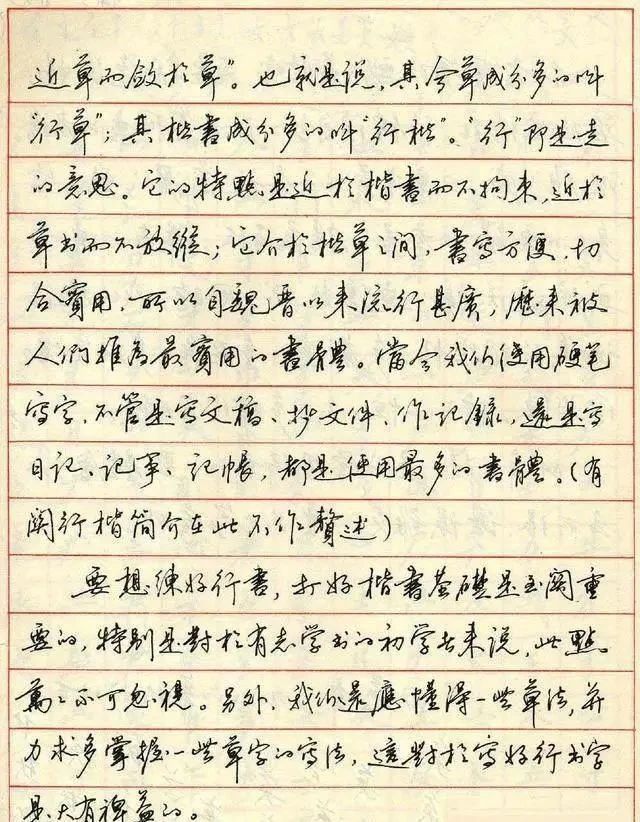 近草而敛於草”。也就是说，其含草成分多的叫
“行草”；其楷書成分多的叫“行楷”。“行”即是走
的意思。它的特點是近於楷書而不拘束，近於
草书而不放縱；它介於楷草之间，書写方便，切
合實用，所以自魏晋以来流行甚廣，歷来被
人們推為最實用的書體。當今我们使用硬笔
写字，不管是写文稿、抄文件、作記錄，還是写
日记、记事、記帳，都是使用最多的書體。（有
関行楷简介在此不作贅述）
要想練好行書，打好楷書基礎是至関重
要的，特别是對於有志学书的初学者来说，此點
萬萬不可忽視。另外，我们還應懂得一些草法，并
力求多掌握一些草字的写法，這對於写好行书字
是大有裨益的。